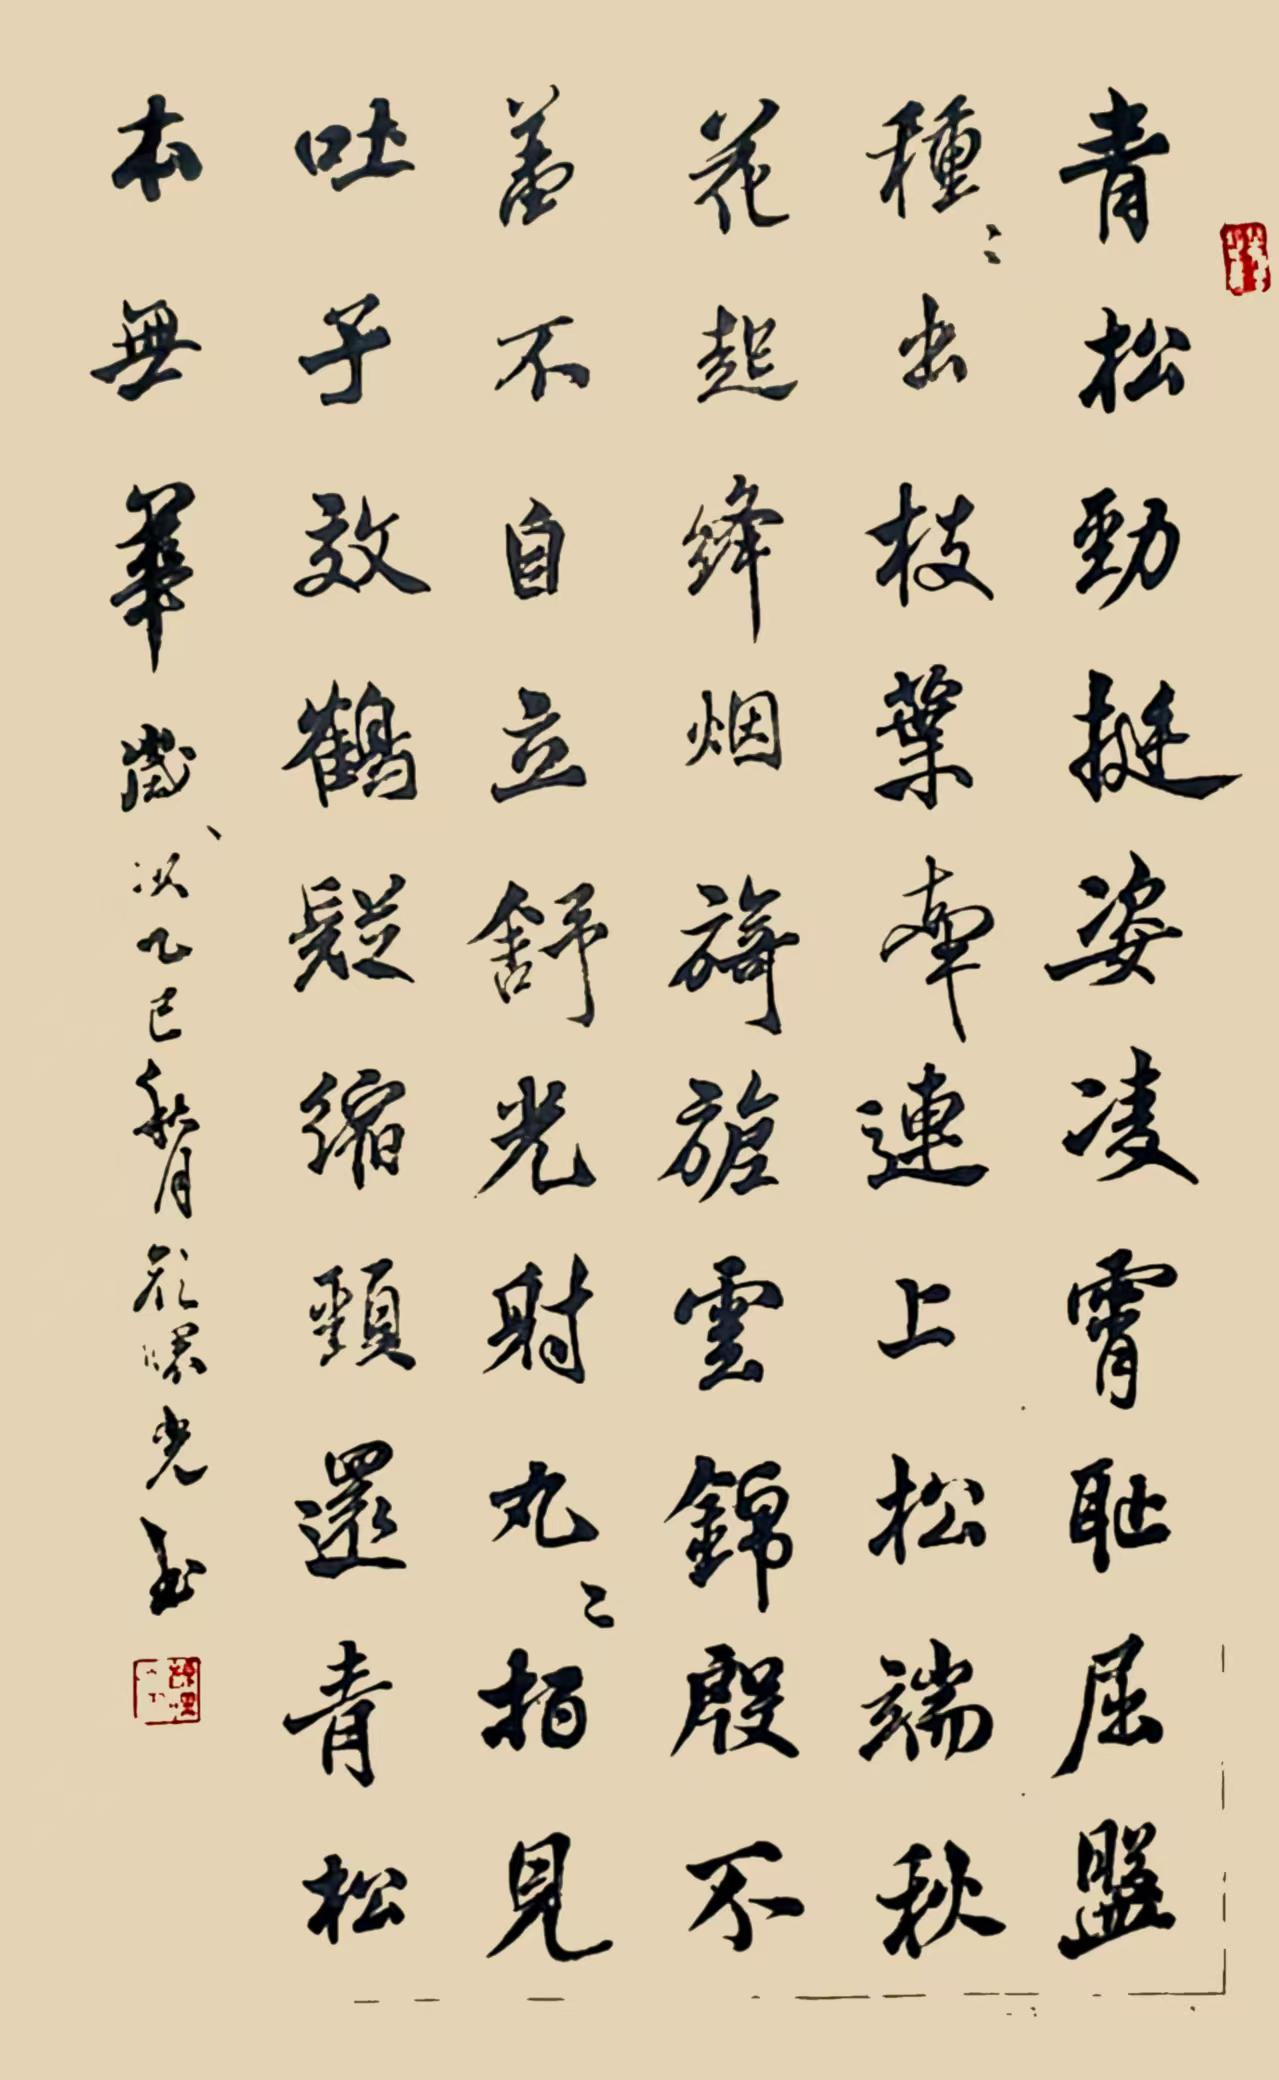 青松勁挺姿凌霄恥屈盤
種〻出枝葉牽連上松端秋
花起絳烟旖旎雲錦殷不
羞不自立舒光射丸〻柏見
吐子效鶴疑縮頸還青松
本無華歲次乙巳秋月光書